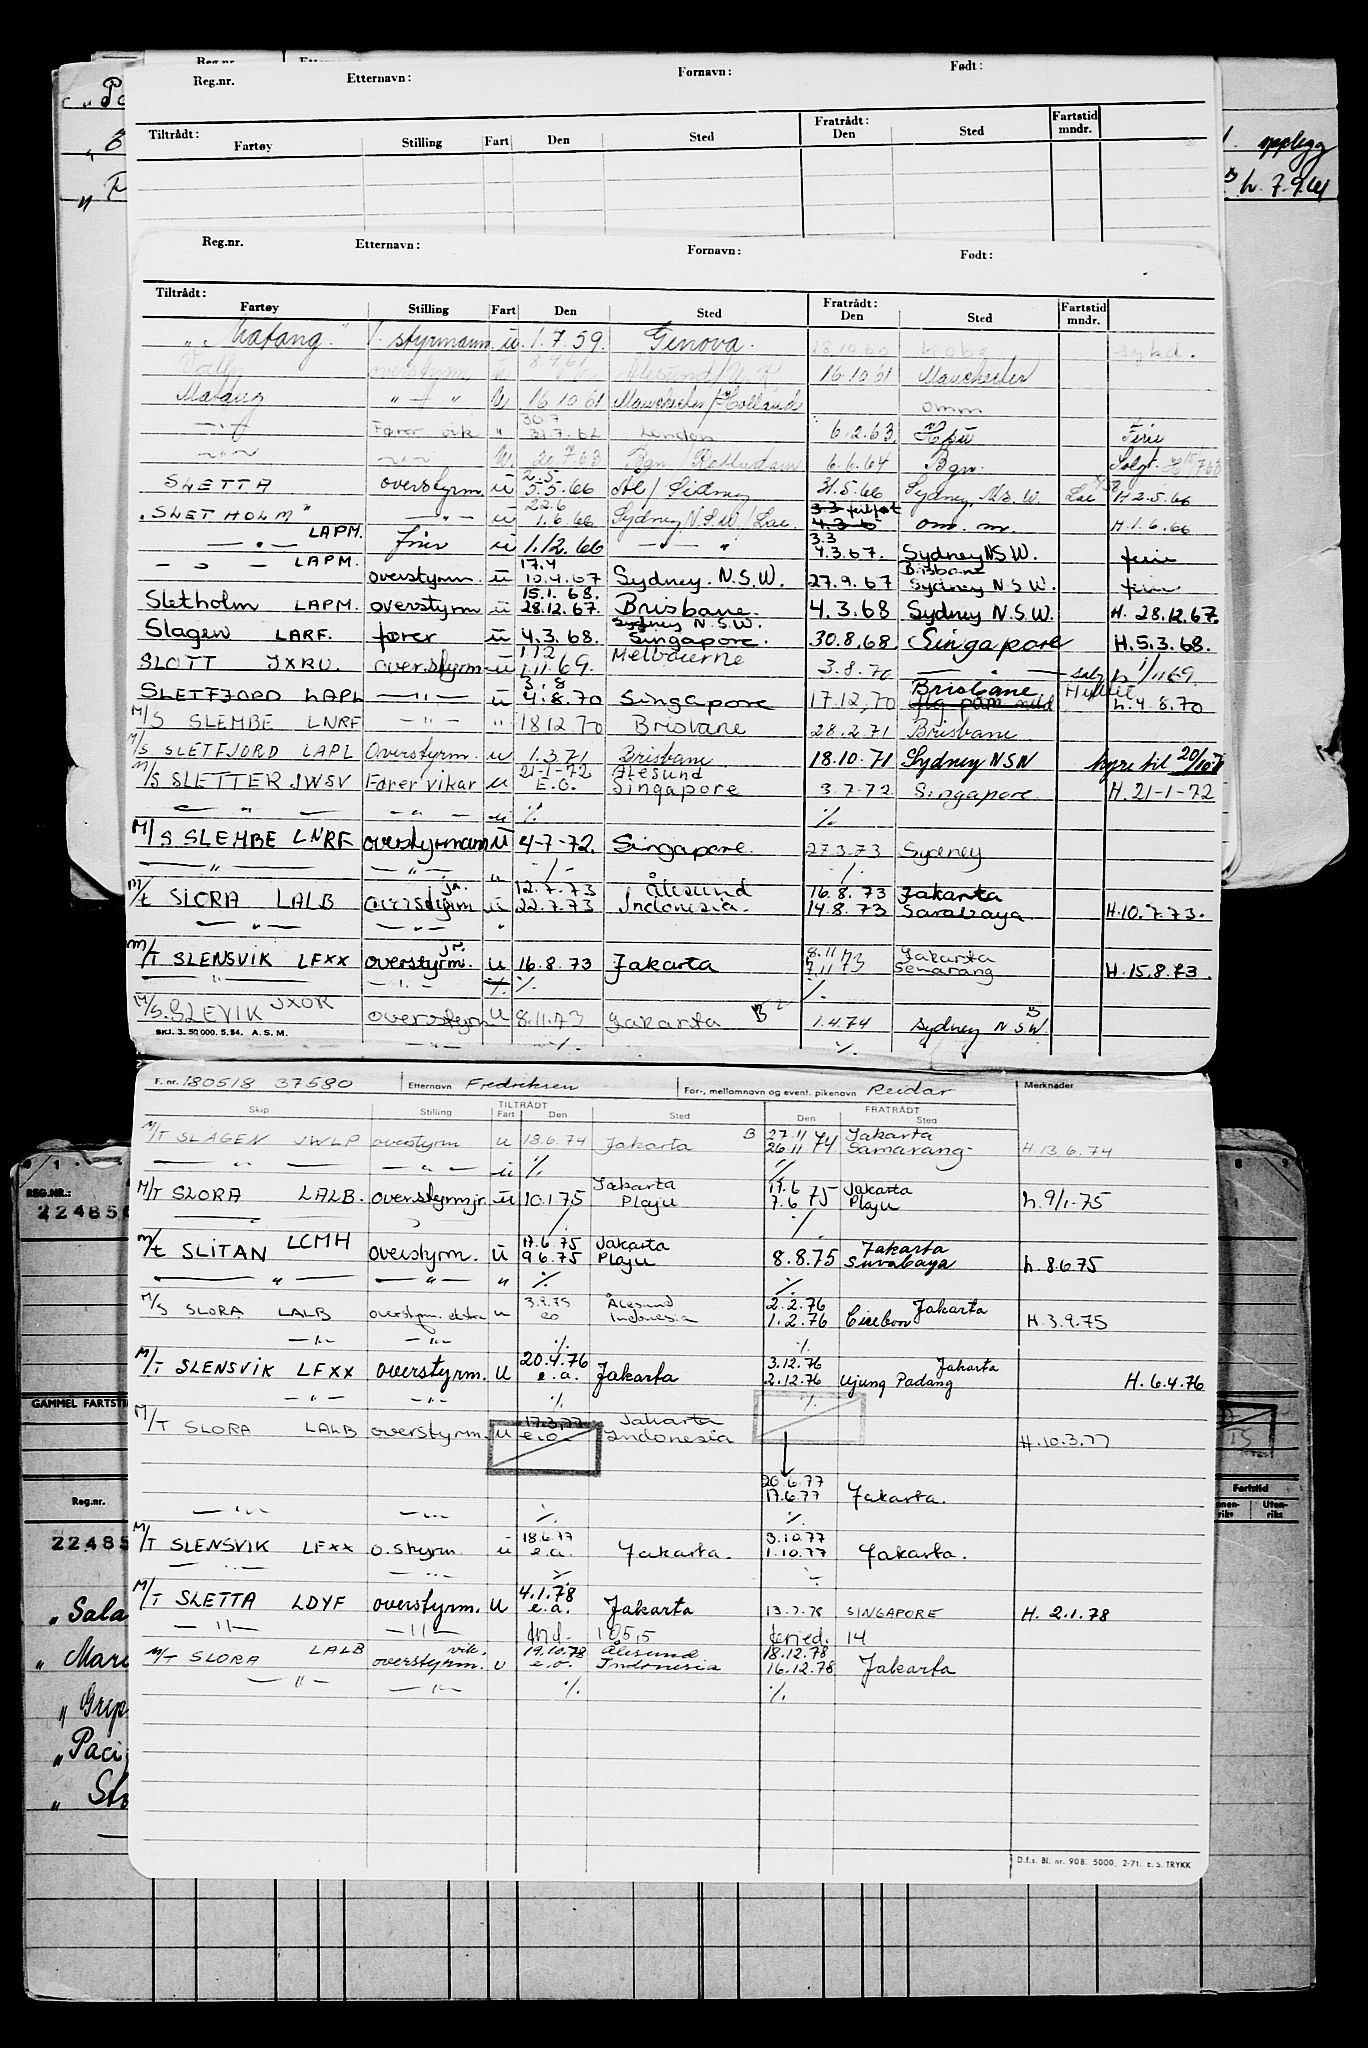 Reg.nr. Etternavn: Fornavn: Født:
Tiltrådt: Fratrådt: Fartstid
Fartøy Stilling Fart Den Sted Den Sted mndr.
opplegg
h. 7.9.61
Reg.nr. Etternavn: Fornavn: Født:
Tiltrådt: Fratrådt: Fartstid
Fartøy Stilling Fart Den Sted Den Sted mndr.
"Matang" 1. styrmann u. 1.7.59. Genova. 28.10.60 Kobe sykd.
overstyrm u 8.4.61 Ålesund/U.K 16.10.61 Manchester
Matang " u 16.10.61 Manchester/Holland omm
30.7
Fører vik " 31.7.62 London 6.2.63. Ferie
u. 20.7.63 Bgn/Rotterdam 6.6.64 Bgn. Solgt.
2.5.
SLETTA overstyrm. u 5.5.66 Ål/Sidney 31.5.66 Sydney, N.S.W. Lae H 2.5.66
22.6 3.3
"SLETHOLM" " u 1.6.66 Sydney N.S.W./Lae. 4.3.6 om. m H.1.6.66
LAPM. 3.3
u 1.12.66 " 4.3.67. Sydney NSW. ferie
LAPM. 17.4 Brisbane
overstyrm. u 10.4.67 Sydney. N.S.W. 27.9.67 Sydney N.S.W. ferie
15.1.68.
Sletholm LAPM. overstyrm u 28.12.67. Brisbane. 4.3.68 Sydney N.S.W. H. 28.12.67.
Sydney N.S.W.
Slagen LARF. fører u 4.3.68. Singapore. 30.8.68 Singapore H.5.3.68.
1.12 Melbourne
SLOTT JXRU. overstyrm u 1.11.69. 3.8.70 h 1/11 69.
3.8 Brisbane
SLETFJORD LAPL " u 4.8.70 Singapore 17.12.70 h.4.8.70
M/S SLEMBE LNRF " " 18.12.70 Brisbane 28.2.71 Brisbane
M/S. SLETFJORD LAPL Overstyrm. u 1.3.71 Brisbane 18.10.71 Sydney NSW hyre til 20/10.71
21-1-72 Ålesund
M/S SLETTER JWSV Fører vikar u E.O. Singapore 3.7.72 Singapore H. 21-1-72
" " u % %
M/S SLEMBE LNRF overstyrmann u 4-7-72. Singapore. 27.3.73 Sydney
" " " % %
jr. 12.7.73 Ålesund 16.8.73 Jakarta
M/t SLORA LALB overstyrm u 22.7.73 Indonesia. 14.8.73 Surabaya H.10.7.73.
" " "
jr. 8.11.73 Jakarta
M/T SLENSVIK LFXX overstyrm. u 16.8.73 Jakarta 7.11.73 Semarang H.15.8.73.
" " % % %
M/S. SLEVIK JXOK overstyrm u 8.11.73 Jakarta B 1.4.74 Sydney N.S.W. B
" % %
SKJ. 3. 50 000. 5. 54. A. S. M.
F. nr. 180518 37580 Etternavn Fredriksen For-, mellomnavn og event. pikenavn Reidar Merknader
TILTRÅDT FRATRÅDT
Skip Stilling Fart Den Sted Den Sted
27.11 Jakarta
M/T SLAGEN JWLP overstyrm u 18.6.74 Jakarta B 26.11 74 Samarang H 13.6.74
" " u % %
Jakarta 17.6 Jakarta
M/T SLORA LALB. overstyrm jr. u 10.1.75 Plaju 7.6 75 Plaju h. 9/1-75
% %
17.6.75 Jakarta Jakarta
M/t SLITAN LCMH overstyrm. u 9.6.75 Plaju 8.8.75 Surabaya h. 8.6.75
" " " % %
3.9.75 Ålesund 2.2.76 Jakarta
M/S SLORA LALB overstyrm. ekstra u eo Indonesia 1.2.76 Cirebon H.3.9.75
" " % %
20.4.76 3.12.76 Jakarta
M/T SLENSVIK LFXX overstyrm. u e.a. Jakarta 2.12.76 Ujung Padang H. 6.4.76
" " % %
17.3.77 Jakarta
M/T SLORA LALB overstyrm. u e.o. Indonesia H.10.3.77
20.6.77
17.6.77 Jakarta.
" " % %
18.6.77 3.10.77
M/T SLENSVIK LFXX o.styrm. u e.a. Jakarta. 1.10.77 Jakarta.
" " % %
4.1.78
M/T SLETTA LDYF overstyrm. u e.a. Jakarta 13.7.78 SINGAPORE H. 2.1.78
" " 1055 14
vik. 19.10.78 Ålesund 18.12.78
M/T SLORA LALB overstyrm. u e.o. Indonesia 16.12.78 Jakarta
" " % %
D.f.s. Bl. nr. 908. 5000. 2-71. E. S. TRYKK
REG.NR.:
GAMMEL FARTSTI
Reg.nr.
22485
Fartstid
"Sala
"Mari
"Grip
"Paci